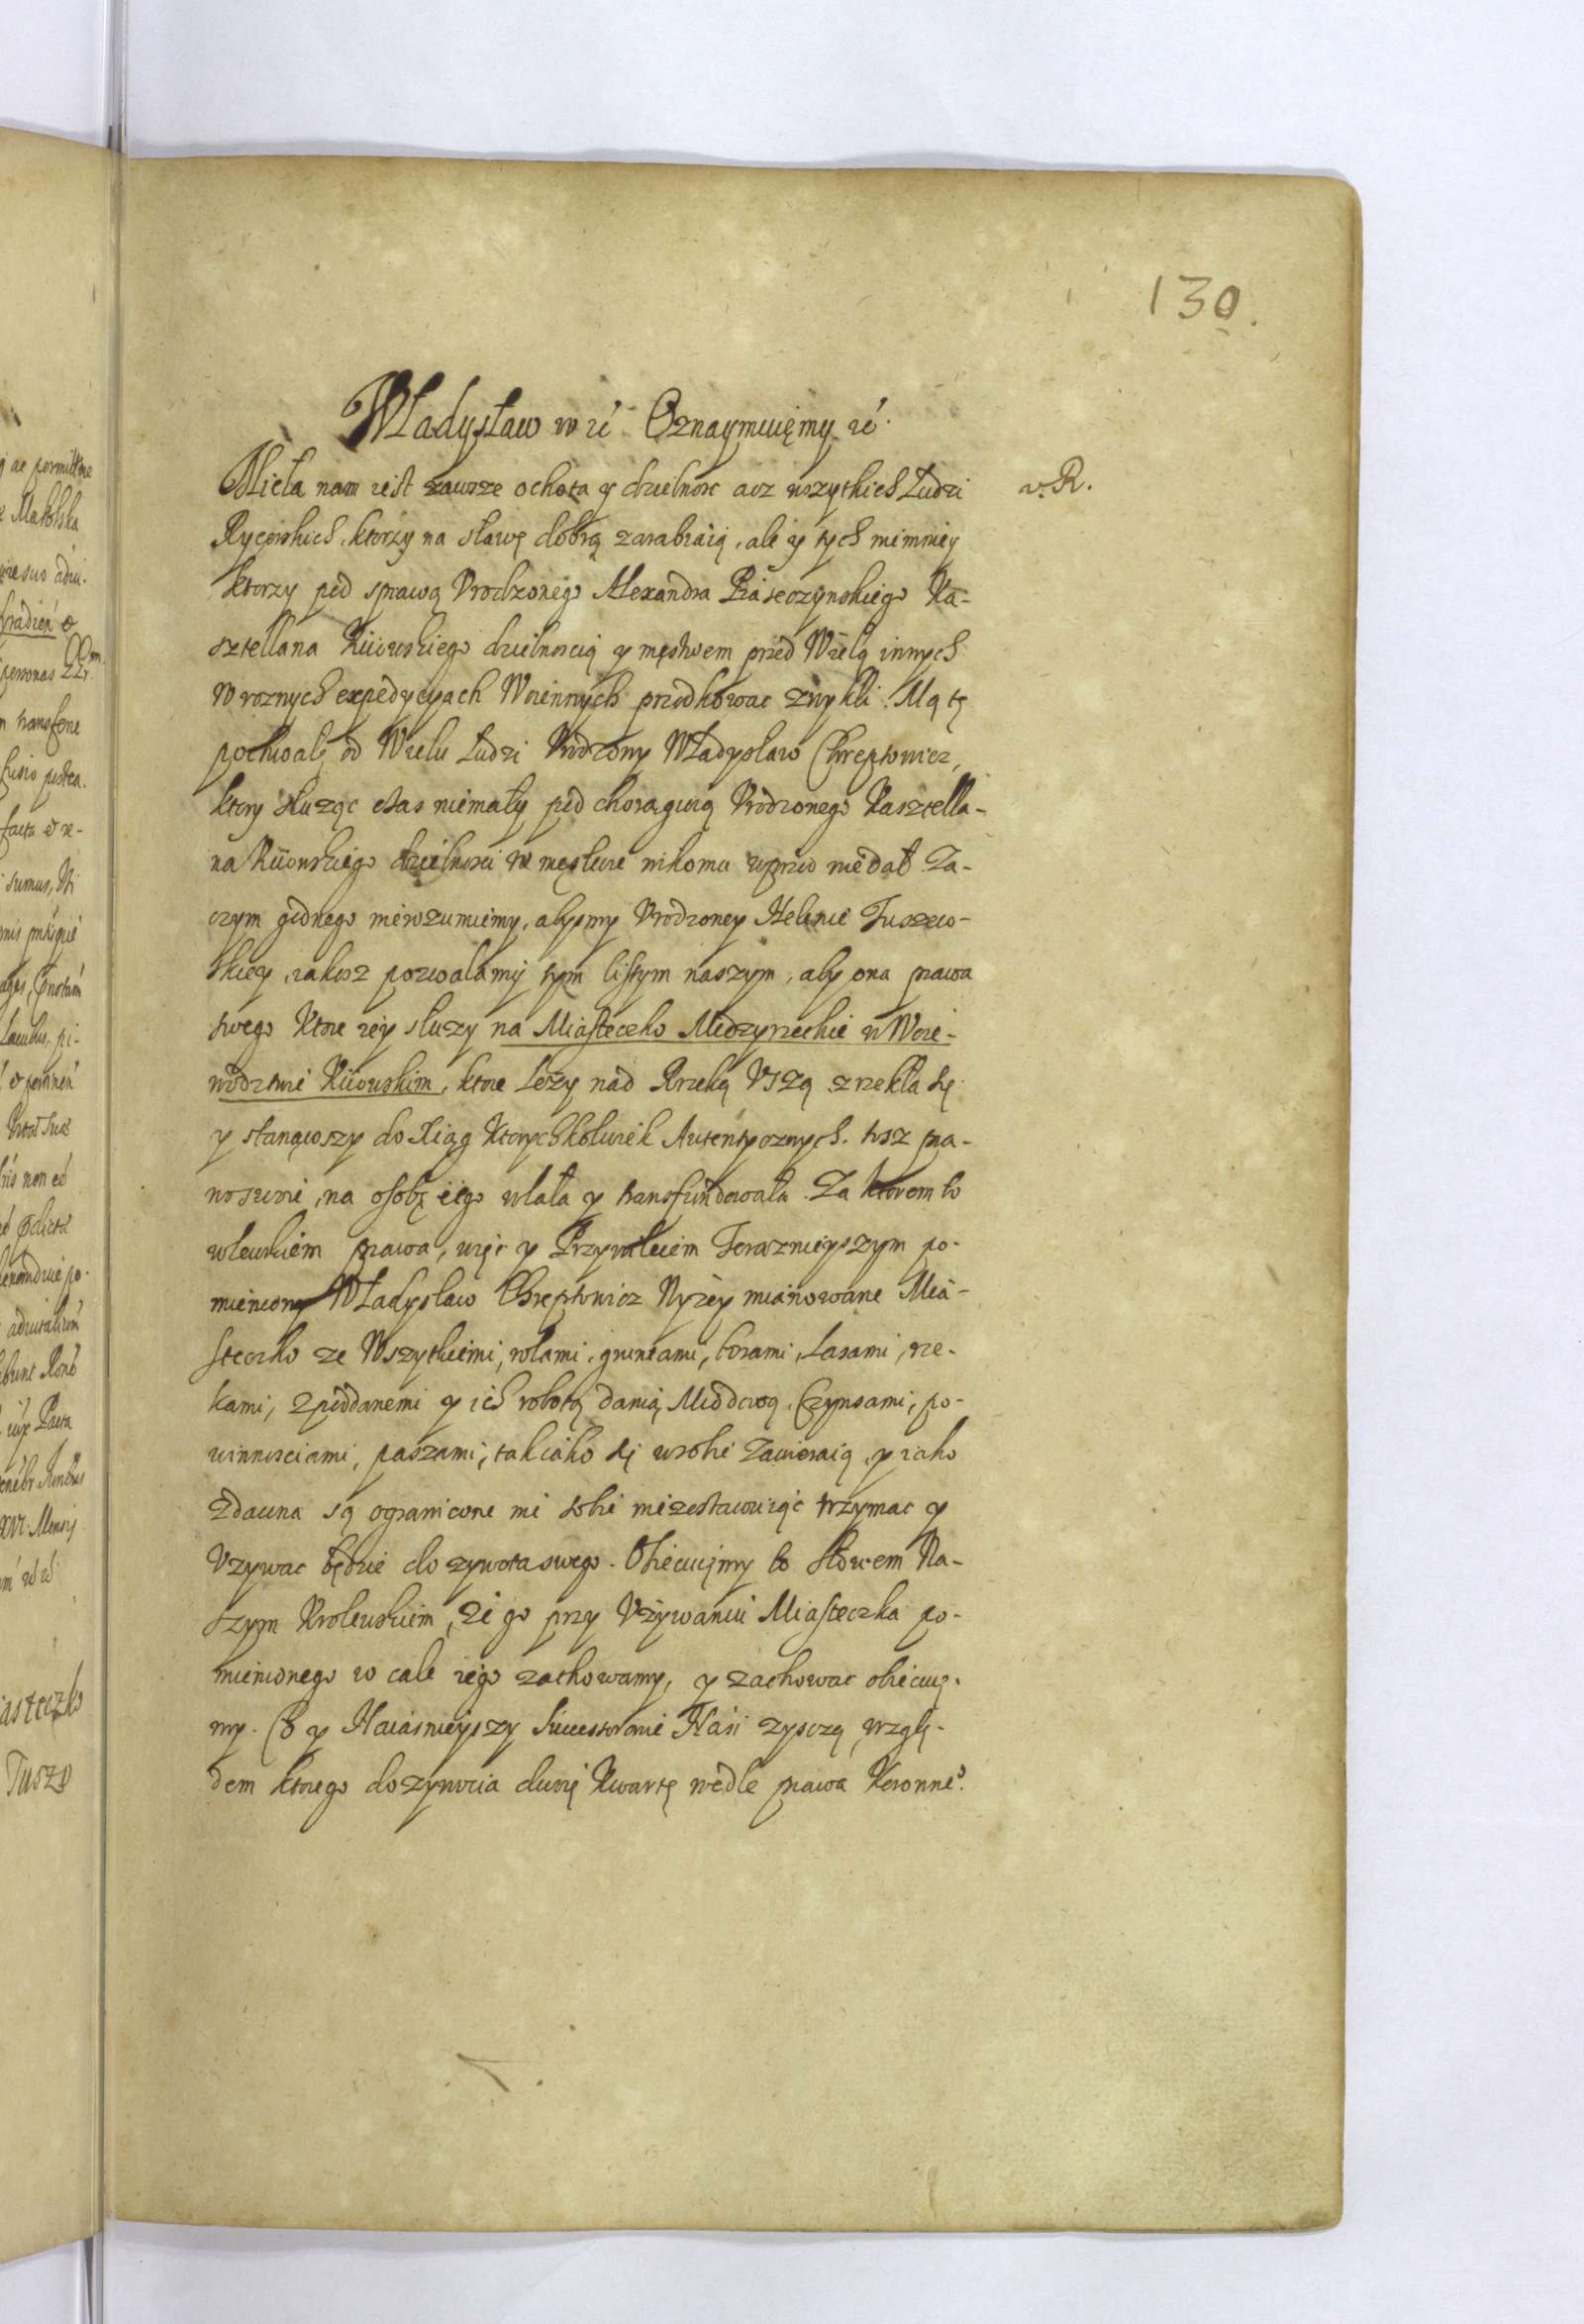 130.
Władysław IV etc. Oznaymuięmy etc.
Mieła nam iest zawsze ochota y dzielnosc acz wszytkich Ludzi
v. R.
Rycerskich, ktorzy na sławę dobrą zarabiaią, ale y tych niemniey
ktorzy pod sprawą Vrodzonego Alexandra Piaseczynskiego Ka-
sztellana Kiiowskiego dzielnoscią y męstwem przed Wielą innych
W roznych expedycyach Woiennych przodkowac zwykli. Ma tę
pochwałę od Wielu Ludzi Vrodzony Władysław Chreptowicz,
ktory służąc czas niemały pod chorągwią Vrodzonego Kasztella-
na Kiiowskiego dzielnosci w męstwie nikomu wprzod niedał. Za-
czym godnego nierozumiemy, abysmy Vrodzoney Helenie Tuszew-
skiey, iakosz pozwalamy tym listym naszym, aby ona prawa
swego Ktore iey służy na Miasteczko Miedzyrzeckie w Woie-
wodztwie Kiiowskim, ktore Leży nad Rzeką Vszą zrzekła się
y stanąwszy do Xiąg Ktorychkolwiek Autentycznych. tosz pra-
wo swoie, na osobę iego wlała y transfundowała. Za ktorem to
wlewkiem prawa, więc y Przywileiem Teraznieyszym po-
mieniony Władysław Chreptowicz Wyżey mianowane Mia-
steczko ze Wszytkiemi, rolami, gruntami, borami, Lasami, rze-
kami, z poddanemi y ich robotą danią Miodową, Czynszami, po-
winnosciami, paszami, tak iako się w sobie Zawieraią, y iako
zdawna są ograniczone nic sobie niezostawuiąc trzymac y
Vzywac będzie do zywota swego. Obiecuięmy to Słowem Na-
szym Krolewskiem, że go przy Vżywaniu Miasteczka po-
mienionego w cale iego zachowamy, y zachowac obiecuię-
my. Co y Naiasnieyszy Successorowie Nasi zysczą, wzglę-
dem ktorego dożywocia dwoię Kwartę wedle prawa Koronne°.